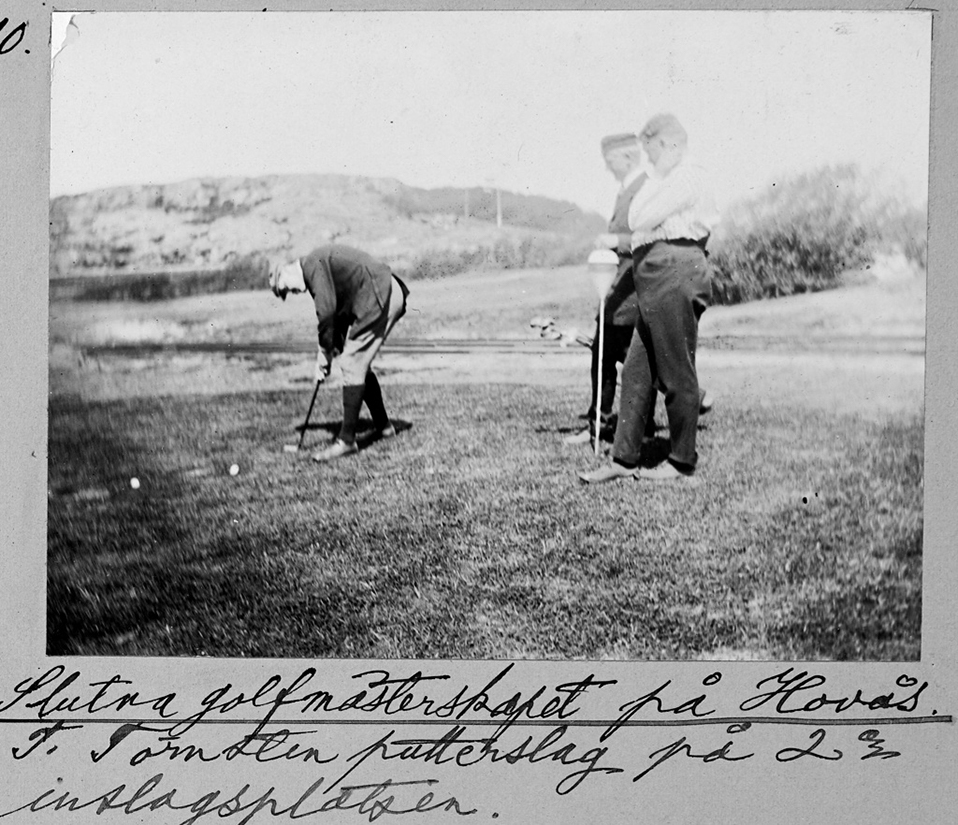 10.
Slutna golfmästerskapet på Hovås.
F. Törnsten putterslag på 2
inslagsplatsen.